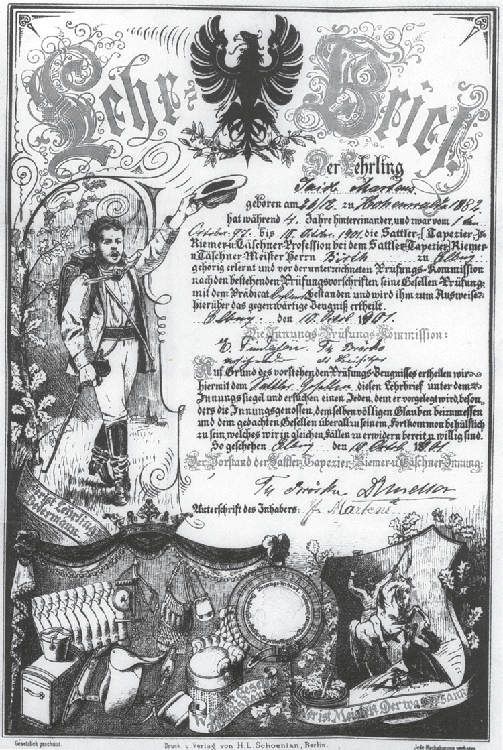 Lehr-Brief
Der Lehrling
Martens
geboren am 26/12. zu 1882
hat während 4 Jahre hintereinander, und zwar vom 1ten
October 97. bis 10. Octbr. 1901. die Sattler- Tapezier-
Riemer- u. Täschner-Profession bei dem Sattler-Tapezier-Riemer-
u. Täschner Meister Herrn zu Elbing
gehörig erlernt und vor der unterzeichneten Prüfungs-Kommission
nach den bestehenden Prüfungsvorschriften seine Gesellen-Prüfung
mit dem Prädicat bestanden und wird ihm zum Ausweise
hierüber das gegenwärtige Zeugniß ertheilt.
Elbing, den 10. Octbr. 1901.
Die Innungs-Prüfungs-Kommission:
als Beisitzer
Auf Grund des vorstehenden Prüfungs-Zeugnisses ertheilen wir
hiermit dem Sattler Gesellen diesen Lehrbrief unter dem
Innungssiegel und ersuchen einen Jeden, dem er vorgelegt wird, beson-
ders die Innungsgenossen, demselben völligen Glauben beizumessen
und dem gedachten Gesellen überall zu seinem Fortkommen behülflich
zu sein, welches wir in gleichen Fällen zu erwidern bereit u. willig sind.
So geschehen Elbing den 10. Octb. 1901
Der Vorstand der Sattler, Tapezier, Riemer u. Täschner Innung:
Unterschrift des Inhabers: Martens
Wer ist Lehrling
Jedermann.
Wer ist Meister Der was ersann
Gesetzlich geschützt.
Druck u. Verlag von H. L. Schownian, Berlin.
Jede Nachahmung verboten.